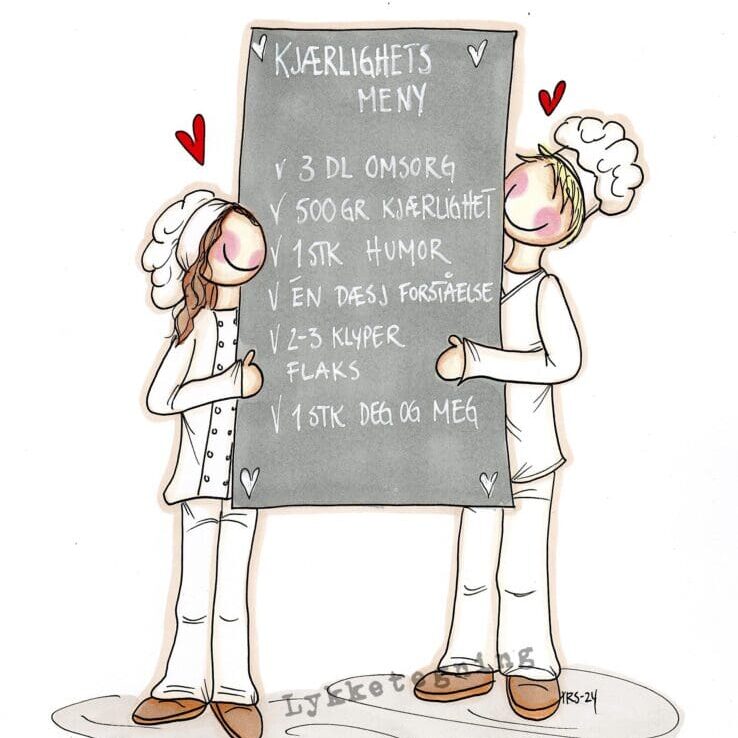 KJÆRLIGHETS
MENY
√ 3 DL OMSORG
√ 500 GR KJÆRLIGHET
√ 1 STK HUMOR
√ ÉN DÆSJ FORSTÅELSE
√ 2-3 KLYPER
FLAKS
√ 1 STK DEG OG MEG
Lykketegning